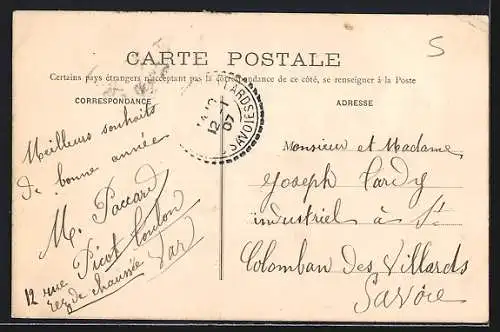 5
CARTE POSTALE
Certains pays étrangers n'acceptant pas la correspondance de ce côté, se renseigner à la Poste
CORRESPONDANCE
ADRESSE
LARDS
12 -1
07
SAVOIE
Meilleurs souhaits
de bonne année
M. Paccard
12 rue Picot Toulon
rez de chaussée Var
Monsieur et Madame
Joseph Cardy
industriel à St
Colomban Des Villards
Savoie